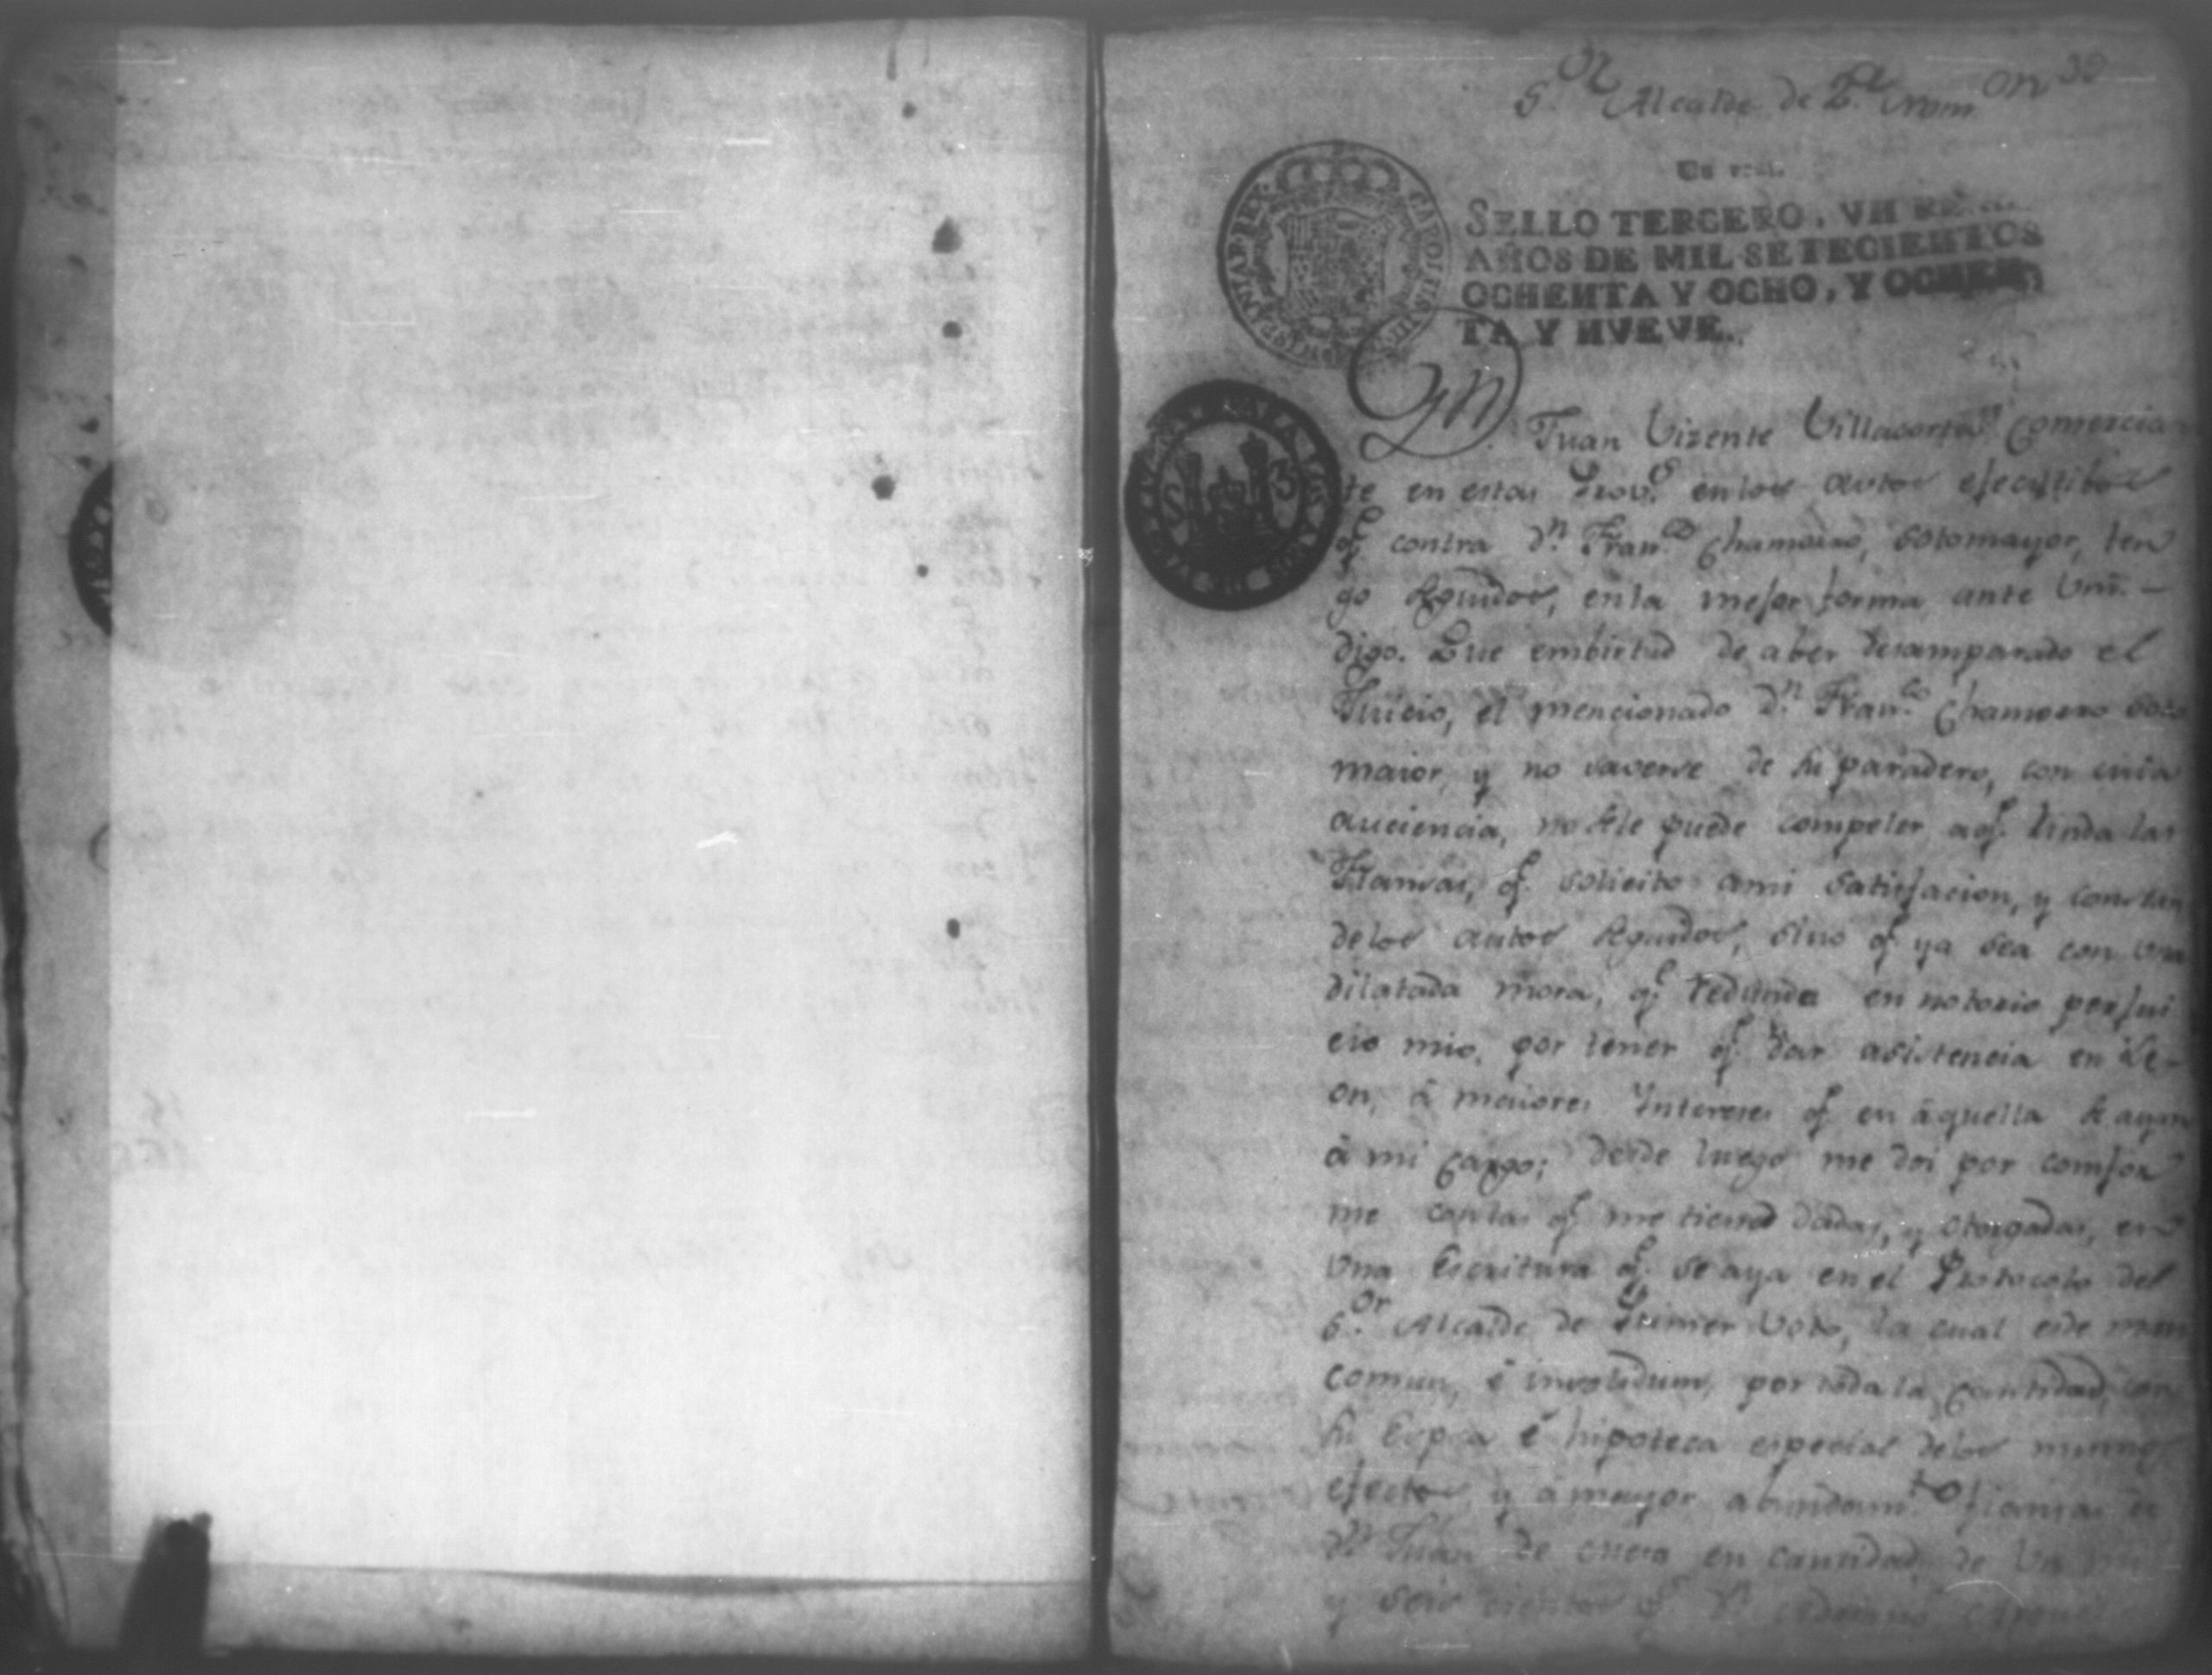 S.or Alcalde de 2.a Nom.on 38
Un real.
SELLO TERCERO, VN REAL
AÑOS DE MIL SETECIENTOS
OCHENTA Y OCHO, Y OCHEN
TA Y NVEVE.
Juan Vizente Villacorta Comercia
te en estas Prov.s en los autos ejecutibos
q.e contra D.n Fran.co Chamorro, sotomayor, ten
go seguidos, en la mejor forma ante Vm. -
digo. Que embirtud de aber desamparado el
Juicio, el mencionado D.n Fran.co Chamorro soto
maior, y no saverse de su paradero, con cuia
auciencia, no se le puede compeler a q.e rinda las
Fianzas, q.e solicito a mi satisfacion, y constan
de los autos seguidos, sino q.e ya sea con una
dilatada mora, q.e redunda en notorio perjui
cio mio, por tener q.e dar asistencia en Le-
on, á maiores Intereses q.e en áquella se ayan
á mi Cargo; desde luego me doi por comfor
me con las q.e me tiene dadas, y otorgadas, en
una Escritura q.e se aya en el Protocolo del
S.or Alcalde de Primer Voto, la cual es de man
comun, é insolidum, por toda la Cantidad, con
su Espoza é hipoteca especial de los mismos
efectos, y á mayor abundam.to fianza de
D.n Juan de en cantidad de Un mil
y seis cientos p.s